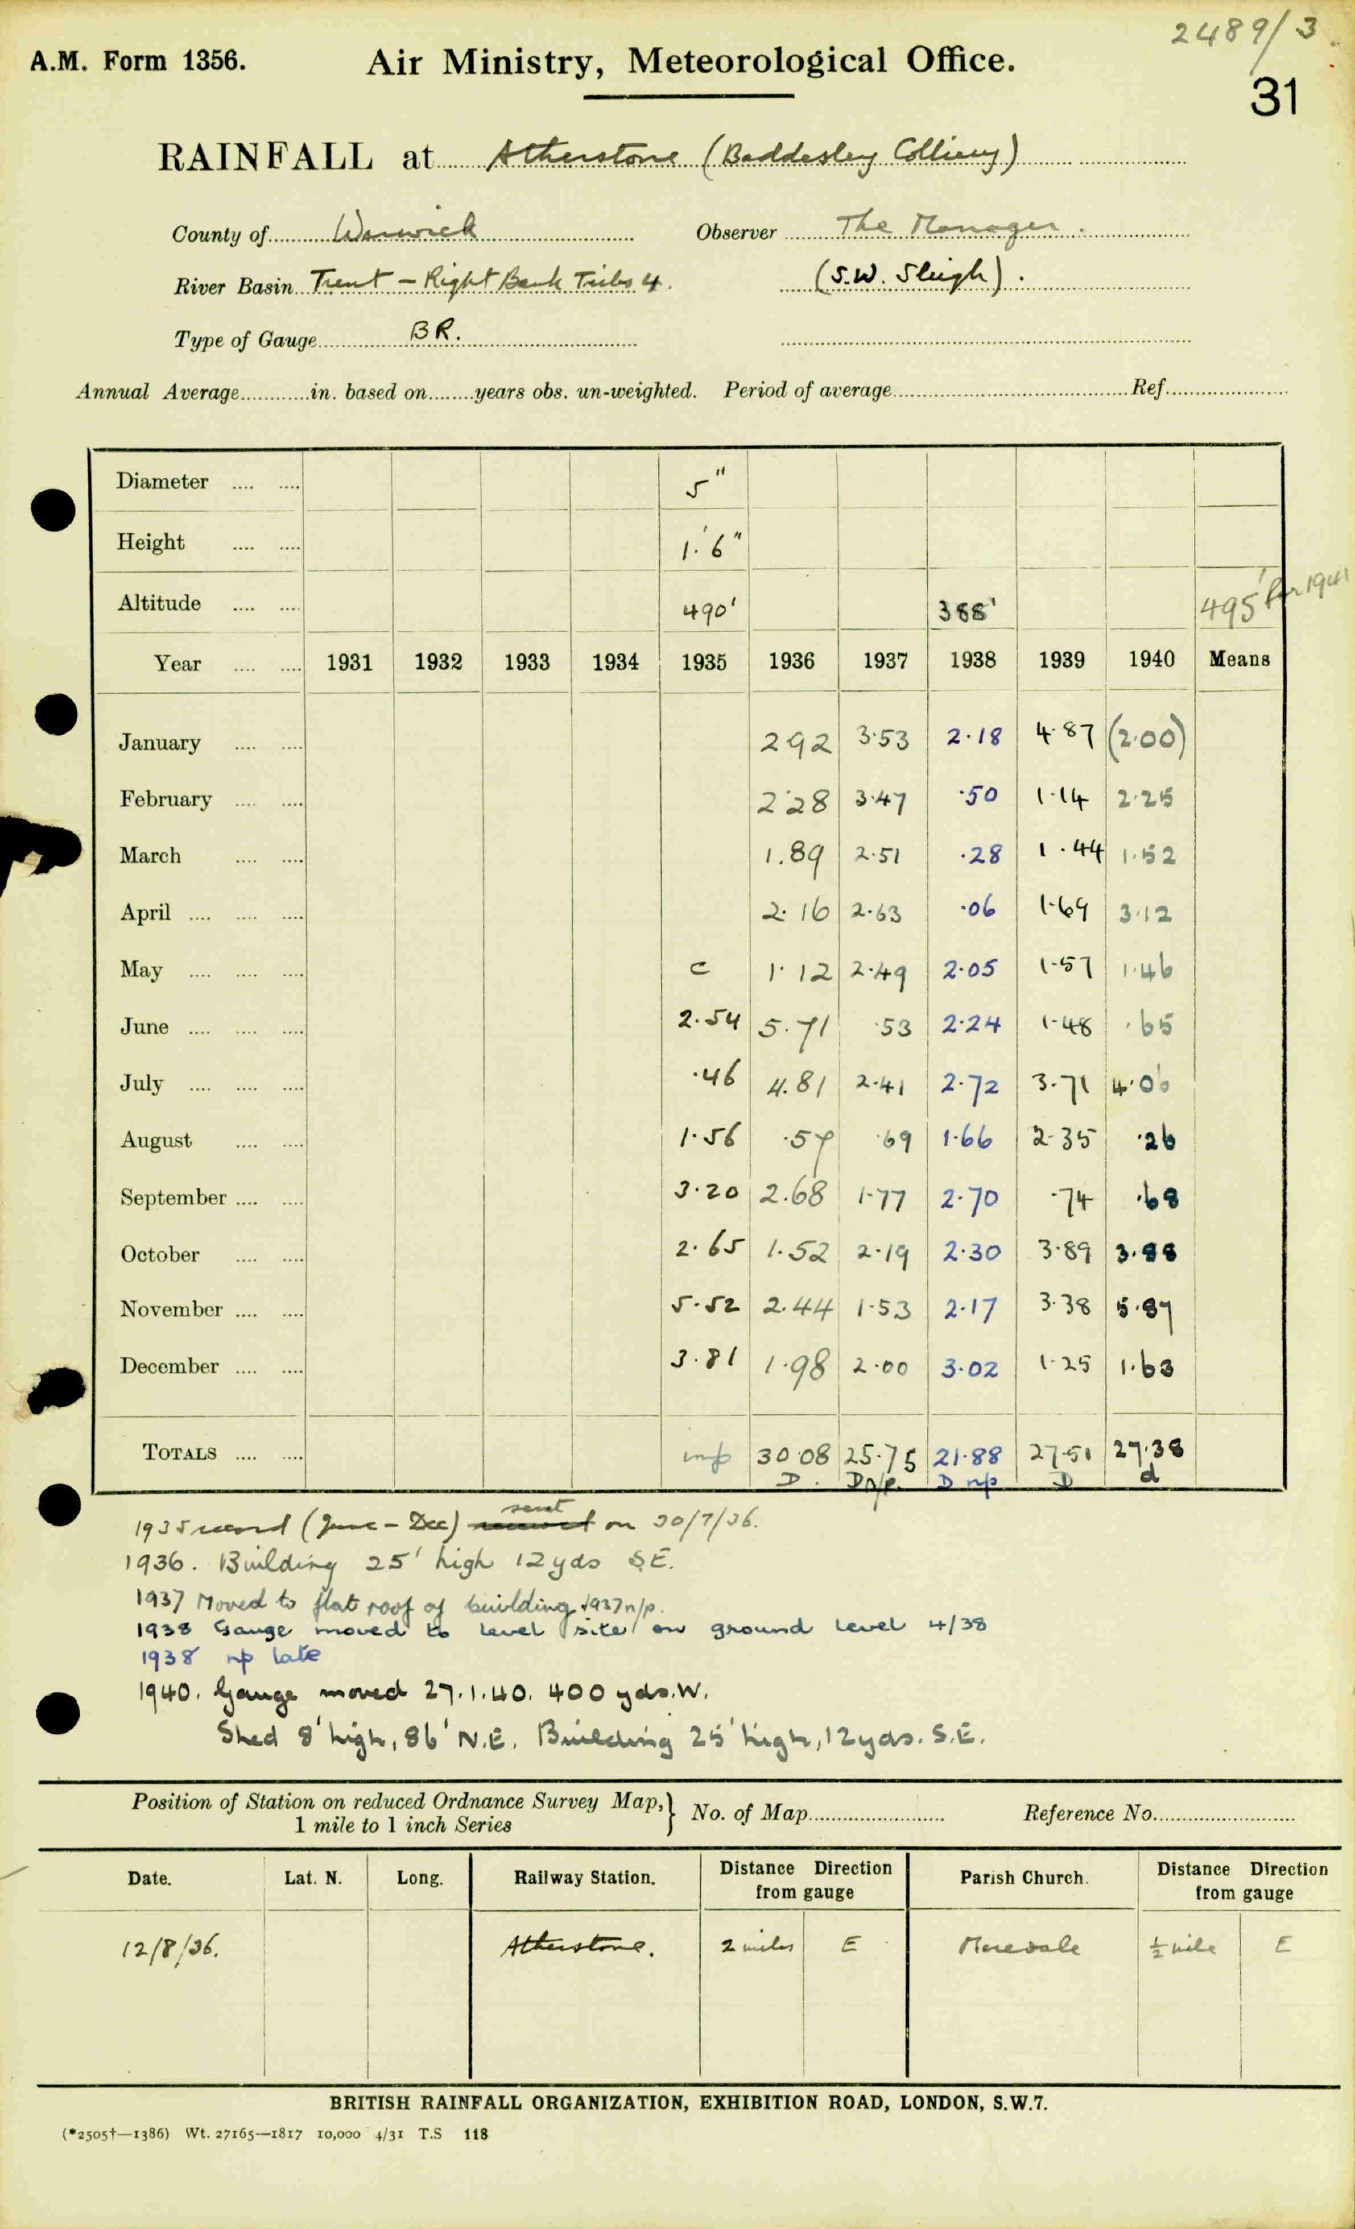 2489/3
A.M. Form 1356. Air Ministry, Meteorological Office.
31
RAINFALL at Atherstone (Baddesley Colliery)
County of Warwick Observer The Manager.
River Basin Trent - Right Bank Tribs 4. (S.W. Sleigh).
Type of Gauge BR.
Annual Average in. based on years obs. un-weighted. Period of average Ref.
Diameter 5"
Height 1'6"
Altitude 490' 388' 495' for 1941
Year 1931 1932 1933 1934 1935 1936 1937 1938 1939 1940 Means
January 2.92 3.53 2.18 4.87 (2.00)
February 2.28 3.47 .50 1.14 2.25
March 1.89 2.51 .28 1.44 1.52
April 2.16 2.63 .06 1.69 3.12
May c 1.12 2.49 2.05 1.57 1.46
June 2.54 5.71 .53 2.24 1.48 .65
July .46 4.81 2.41 2.72 3.71 4.06
August 1.56 .57 .69 1.66 2.35 .26
September 3.20 2.68 1.77 2.70 .74 .68
October 2.65 1.52 2.19 2.30 3.89 3.88
November 5.52 2.44 1.53 2.17 3.38 5.87
December 3.81 1.98 2.00 3.02 1.25 1.63
TOTALS imp 30.08 25.75 21.88 27.51 27.38
D. D n/p. D np D d
1935 record (June - Dec) sent on 30/7/36.
1936. Building 25' high 12yds S.E.
1937 Moved to flat roof of building 1937 n/p.
1938 Gauge moved to level site on ground level 4/38
1938 np late
1940. Gauge moved 27.1.40. 400 yds.W.
Shed 8' high, 86' N.E. Building 25' high, 12yds. S.E.
Position of Station on reduced Ordnance Survey Map, } No. of Map Reference No.
1 mile to 1 inch Series
Date. Lat. N. Long. Railway Station. Distance Direction from gauge Parish Church. Distance Direction from gauge
12/8/36. Atherstone. 2 miles E Merevale ½ mile E
BRITISH RAINFALL ORGANIZATION, EXHIBITION ROAD, LONDON, S.W.7.
(*2505†—1386) Wt. 27165—1817 10,000 4/31 T.S 118